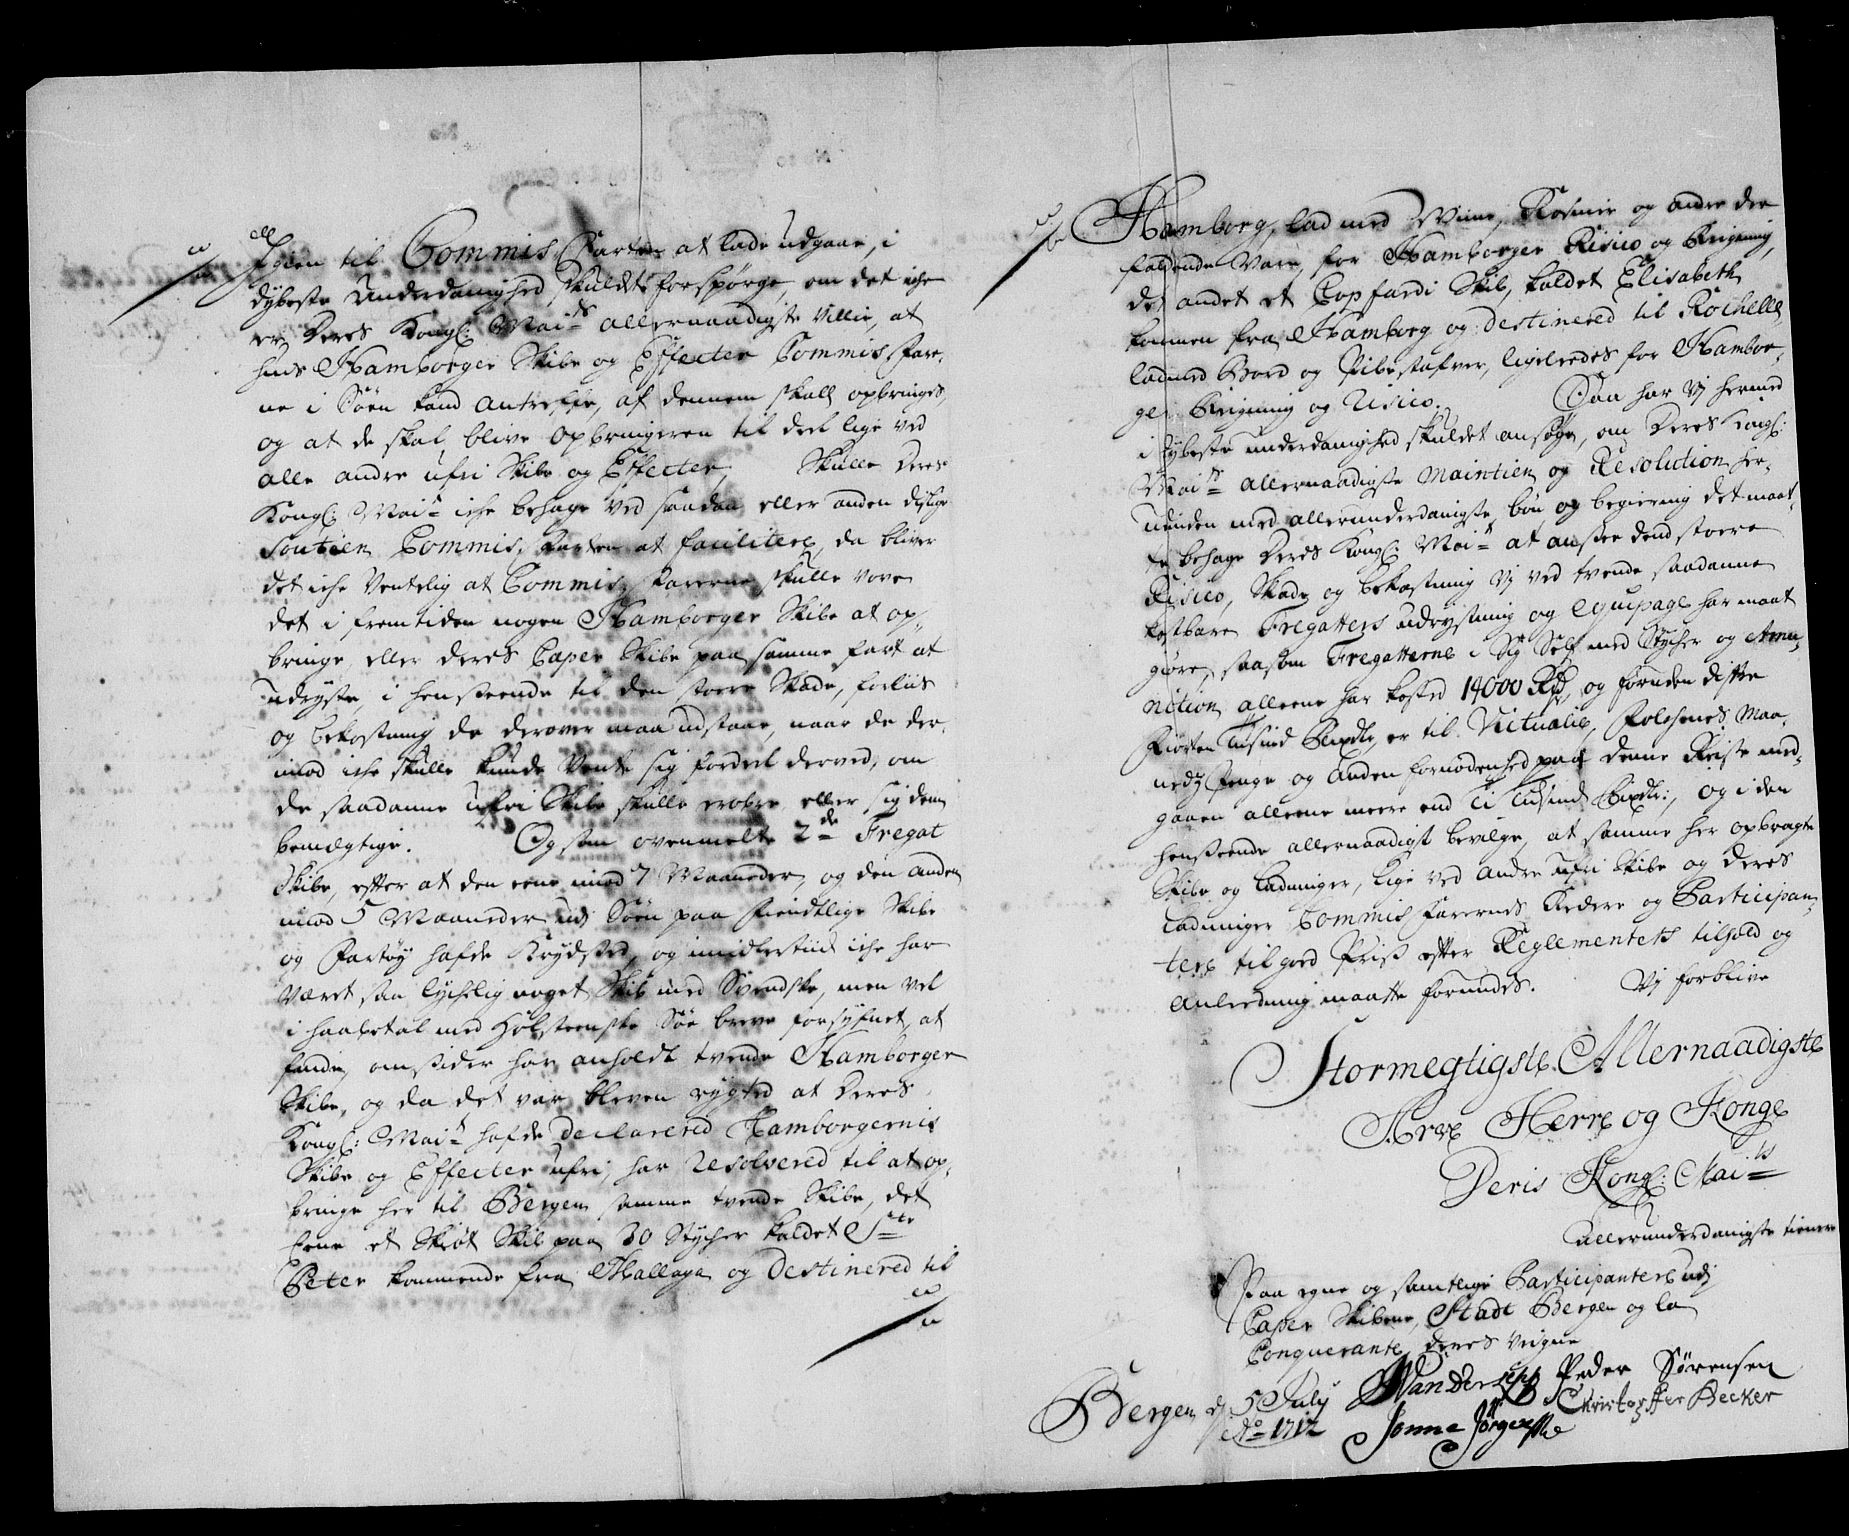 Igien til Commis Farter at lade udgaae, i
dybeste Underdanighed skuldet forspørge, om det iche
er Deres Kongl: Mai:ts allernaadigste Villie, at
huis Hamborger Skibe og Effecter Commis Fare-
ne i Søen kand antreffe, af dennem skall opbringes
og at de skal blive opbringeren til deel lige ved
alle andre ufri Skibe og Effecter, Skulle Deres
Kongl: Mai:t iche behage ved saadan eller anden dislige
Soutien Commis Farten at facilitere, da bliver
det iche Ventelig at Commis Farerne skulle vove
det i fremtiden nogen Hamborger Skibe at op-
bringe, eller deres Caper Skibe paa samme fart at
udryste, i henseende til den store Skade, forliis
og bekostning de derover maa udstaae, naar de der-
imod iche skulle kunde Vente sig fordeel derved, om
de saadanne ufri Skibe skulle erobre eller sig dem
bemegtige. Og som ovenmelte 2de Fregat
Skibe, efter at den eene imod 7 Maaneder, og den anden
imod 5 Maaneder udi Søen paa Fiendtlige Skibe
og Fartøy hafde Krydset, og imidlertiid iche har
Været saa lychelig noget Skib med Svendske, men vel
i haabetal med Holsteenske Søe breve forsyfnet, at
finde, omsider har anholdt tvende Hamborger
Skibe, og da det var bleven rygted at Deres
Kongl: Mai:t hafde Declarered Hamborgernis
Skibe og Effecter ufri, har Resolvered til at op-
bringe her til Bergen samme tvende Skibe, det
Eene et Skiøt Skib paa 30 Stycher kaldet Ste
Peter kommende fra Mallaga og Destinered til
Hamborg, lad med Viine, Rosiner og andre der
faldende Vare, for Hamborger Risico og Reigning,
det andet et Copfardi Skib, kaldet Elisabeth
kommen fra Hamborg og Destinered til Rochelle
lad med Bord og Pibestafver, ligeledes for Hambor-
ger Reigning og Risico. Saa har Vj hermed
i dybeste underdanighed skuldet ansøge, om Deres Kongl:
Mai:ts allernaadigste Maintien og Resolution her-
udinden med allerunderdanigste bøn og begiering det maat-
te behage Deres Kongl: Mai:t at ansee dend store
Risico, Skade og bekostning Vj ved tvende saadanne
kostbare Fregatters udrystning og equipage har maat
giøre, saasom Fregatterne i Sig Self med Stycher og Amu-
nition alleene har kosted 14000 Rdr, og foruden disse
Fiorten Tusind Rixdlr, er til Victualie, Folchenes Maa-
neds Penge og Anden fornødenhed paa denne Reise med-
gaaen alleene meere end Ti Tusind Rixdlr:, og i den
henseende allernaadigst bevilge, at samme her opbragte
Skibe og Ladninger, lige ved andre ufri Skibe og Deres
Ladninger Commis Farernes Redere og Participan-
tere til goed Priss efter Reglementets tilhold og
Anleedning maatte forundes. Vj forblive
Stormegtigste Allernaadigste
Arve Herre og Konge
Deris Kongl: Mai:ts
Allerunderdanigste tienere
Paa egne og samtlige Participanters udj
Caper Skibene, Stadt Bergen og la
Conquerante deres Veigne
Bergen d 5 July Peder Sørensen
Ao 1712 Jonne Jørgensen Christoffer Becker